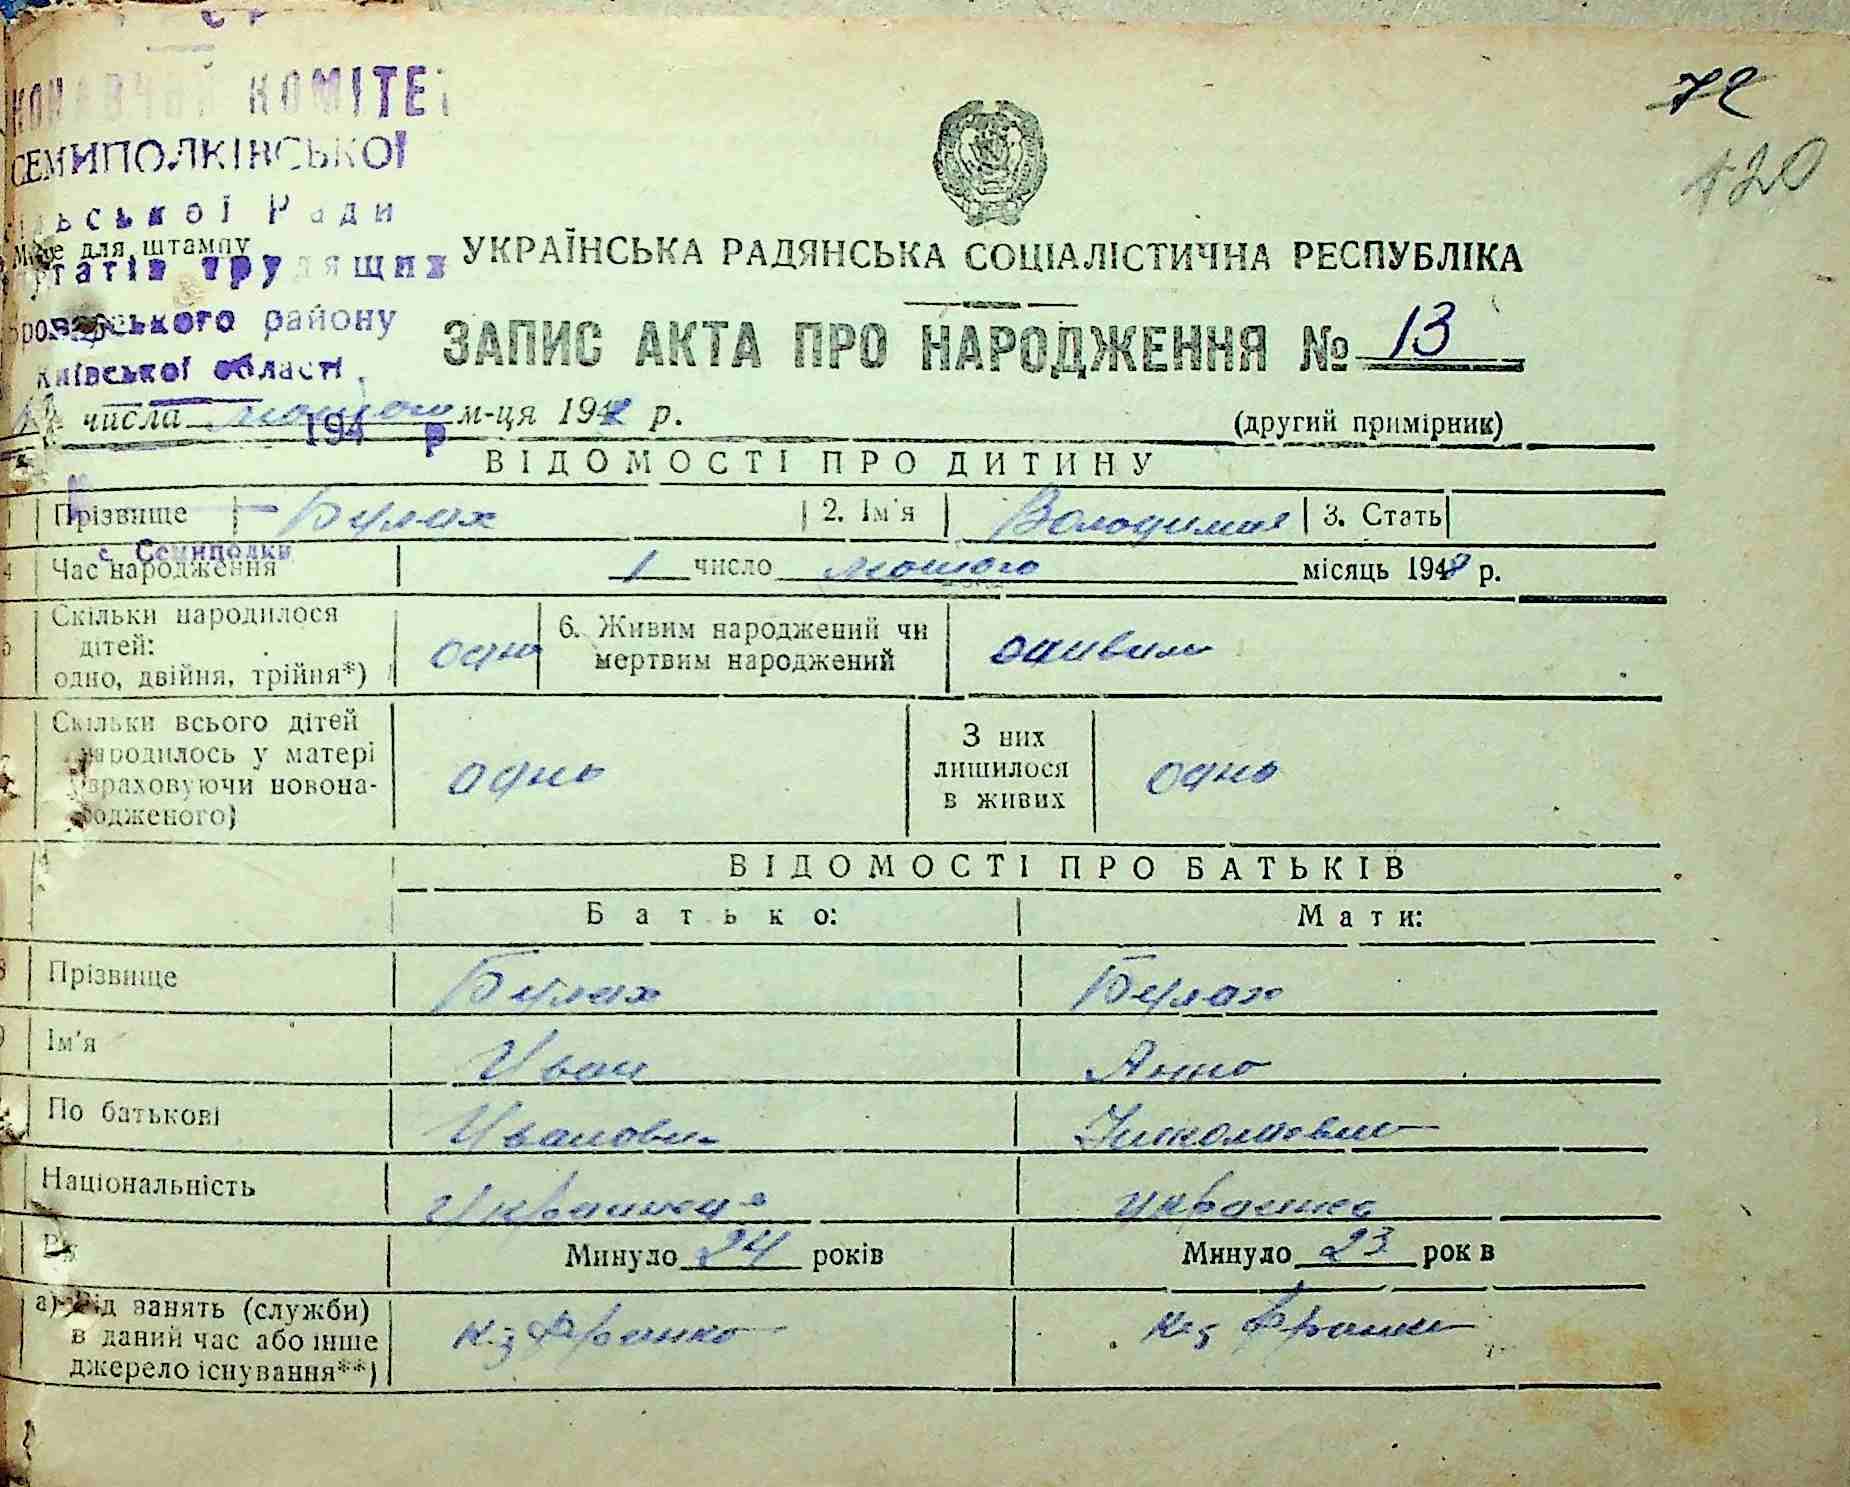 КОНАВЧИЙ КОМІТЕТ
СЕМИПОЛКІВСЬКОЇ
ільської Ради
Місце для штампу
утатів трудящих
Броварського району
Київської області
194 р
с. Семиполки
72
120
УКРАЇНСЬКА РАДЯНСЬКА СОЦІАЛІСТИЧНА РЕСПУБЛІКА
ЗАПИС АКТА ПРО НАРОДЖЕННЯ № 13
числа лютого м-ця 1948 р.
(другий примірник)
ВІДОМОСТІ ПРО ДИТИНУ
Прізвище Булах 2. Ім'я Володимир 3. Стать
4 Час народження 1 число лютого місяць 1948 р.
5 Скільки народилося дітей: одно, двійня, трійня*) одно 6. Живим народжений чи мертвим народжений
Скільки всього дітей народилось у матері (враховуючи новонародженого) одно З них лишилося в живих одно
ВІДОМОСТІ ПРО БАТЬКІВ
Батько: Мати:
8 Прізвище Булах Булах
9 Ім'я Иван Анна
По батькові Иванович Николаевна
Національність Украинець украинка
Минуло 24 років Минуло 23 рок в
а) Від занять (служби) в даний час або інше джерело існування**) к-з Франко к-з Франка